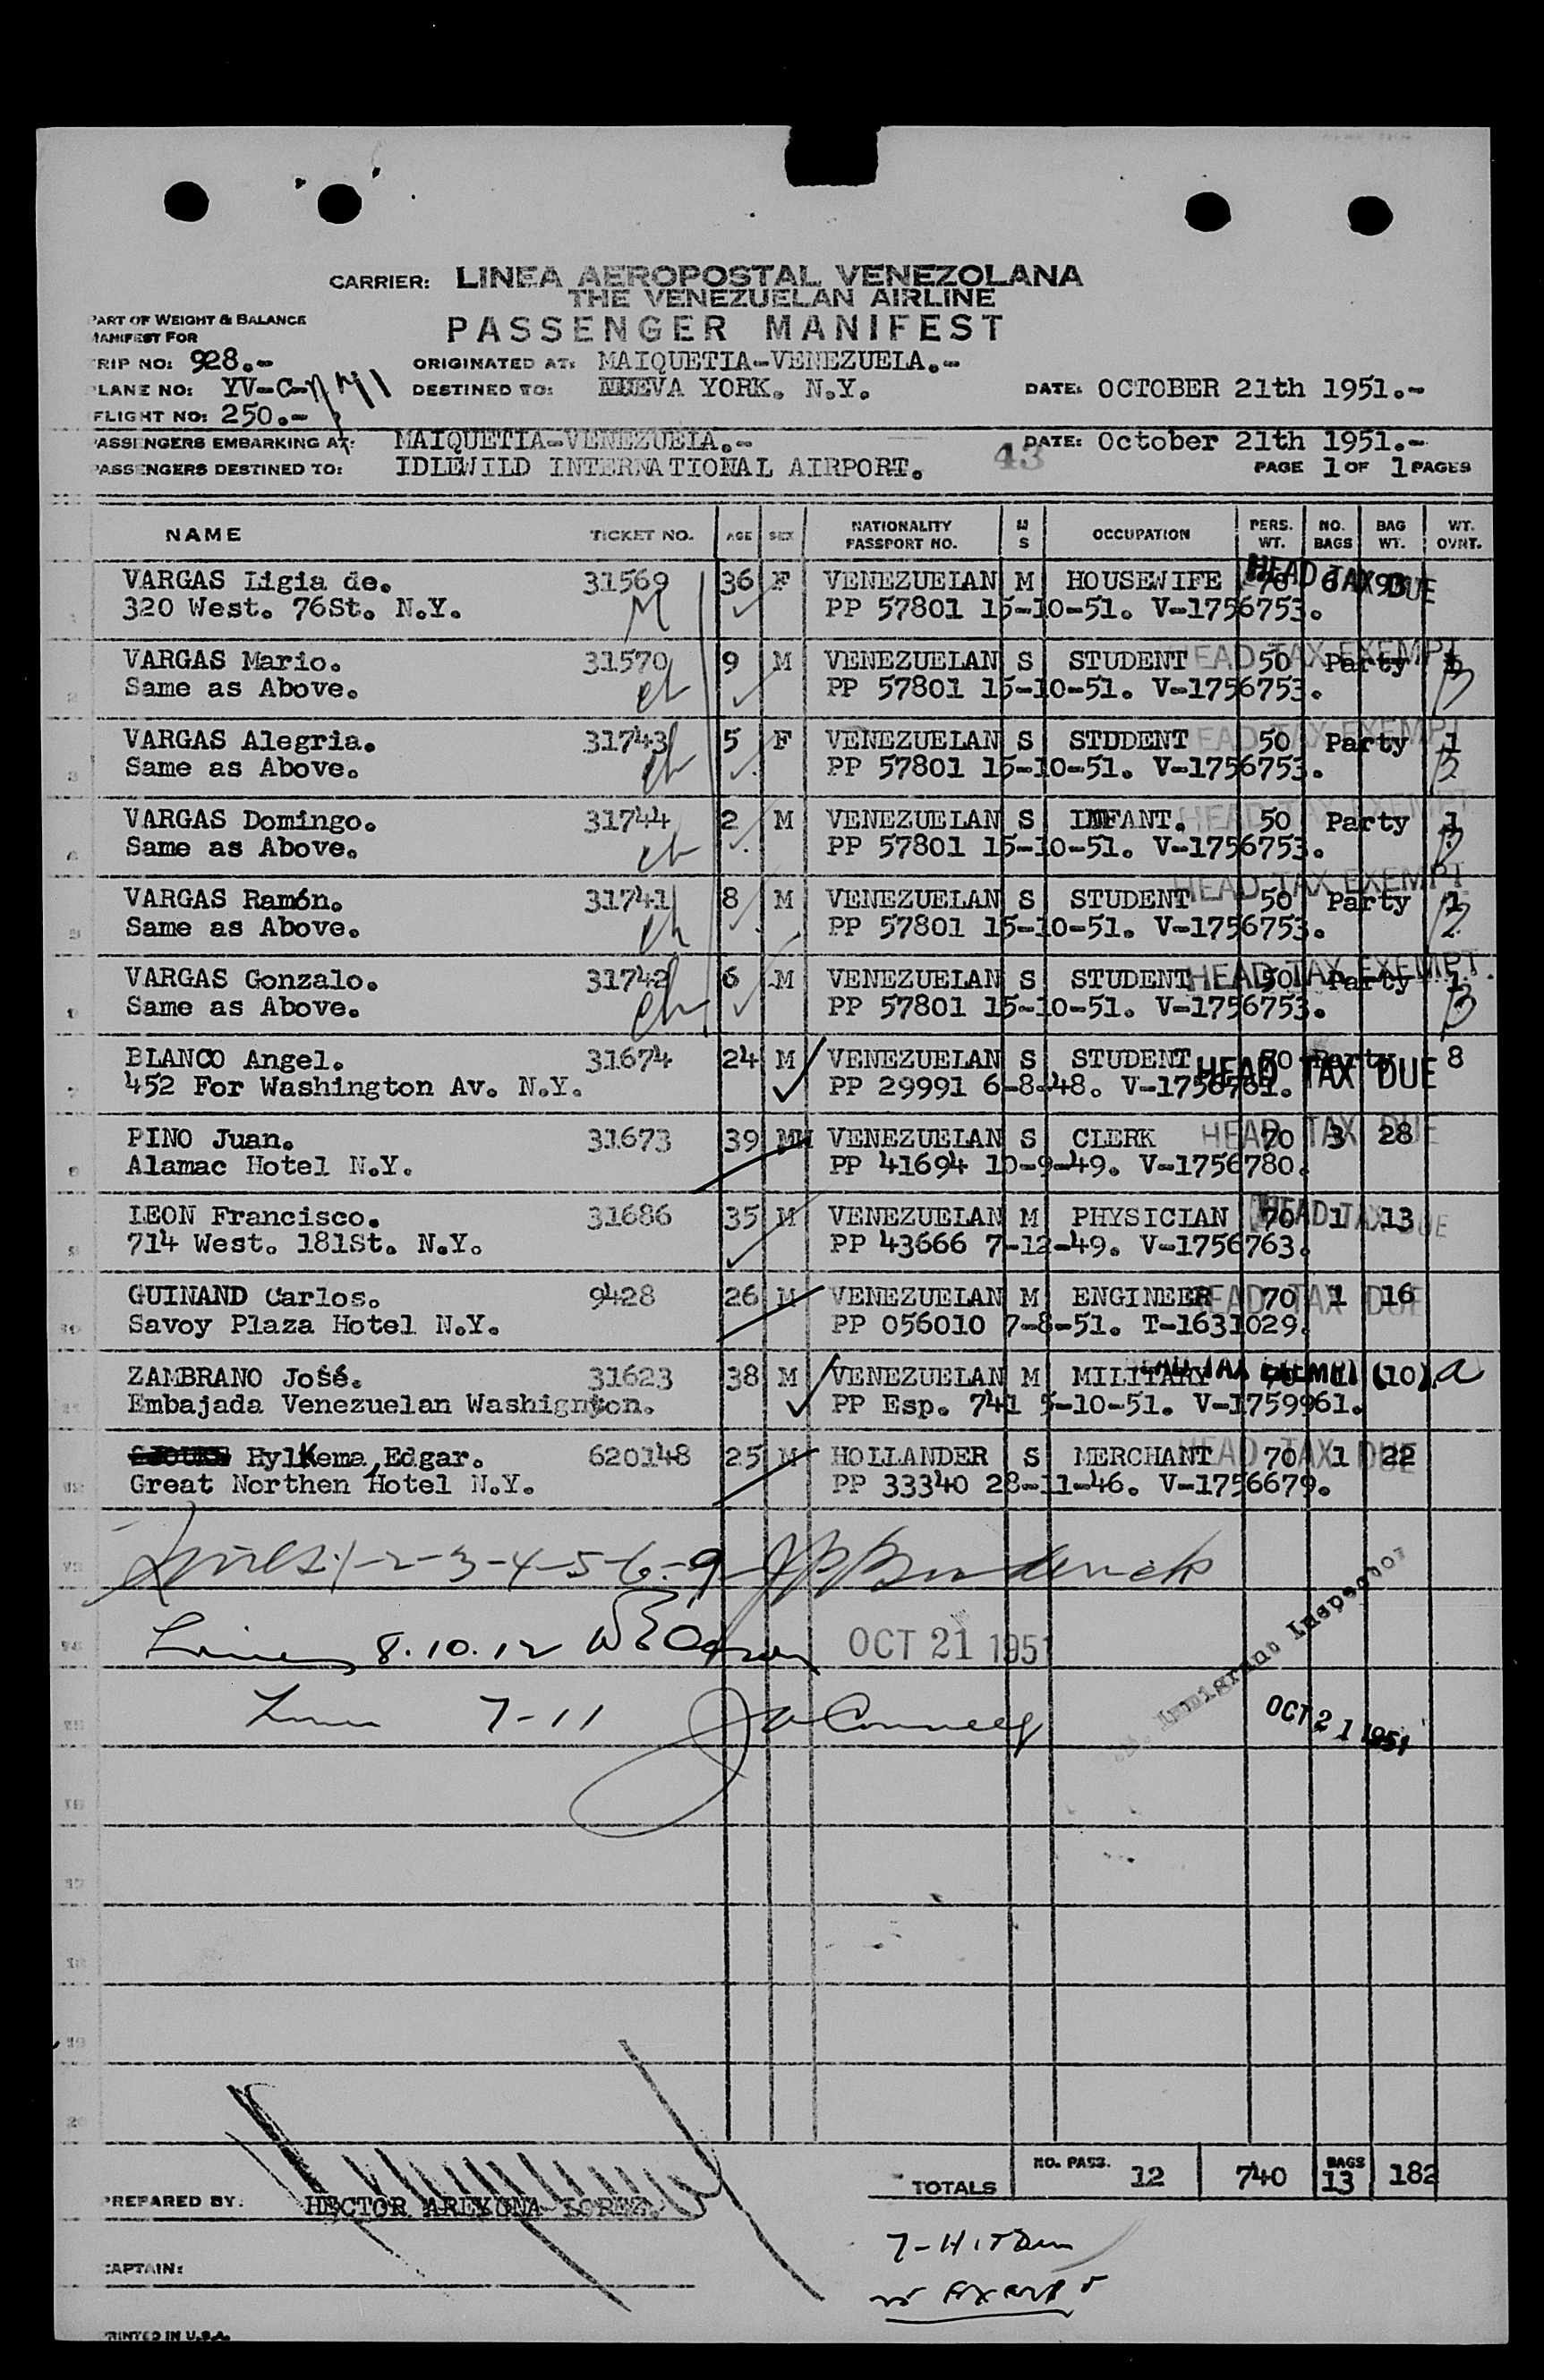 CARRIER: LINEA AEROPOSTAL VENEZOLANA
THE VENEZUELAN AIRLINE
PART OF WEIGHT & BALANCE
MANIFEST FOR
PASSENGER MANIFEST
TRIP NO: 928.- ORIGINATED AT: MAIQUETIA-VENEZUELA.-
PLANE NO: YV-C- DESTINED TO: NUEVA YORK. N.Y. DATE: OCTOBER 21th 1951.-
FLIGHT NO: 250.-
PASSENGERS EMBARKING AT: MAIQUETIA-VENEZUELA.- DATE: October 21th 1951.-
43
PASSENGERS DESTINED TO: IDLEWILD INTERNATIONAL AIRPORT. PAGE 1 OF 1 PAGES
NAME TICKET NO. AGE SEX NATIONALITY PASSPORT NO. M S OCCUPATION PERS. WT. NO. BAGS BAG WT. WT. OVNT.
VARGAS Ligia de. 31569 36 F VENEZUELAN M HOUSEWIFE 70 6 93 HEAD TAX DUE
320 West. 76St. N.Y. PP 57801 15-10-51. V-1756753.
VARGAS Mario. 31570 9 M VENEZUELAN S STUDENT 50 Party 1 HEAD TAX EXEMPT
Same as Above. PP 57801 15-10-51. V-1756753.
VARGAS Alegria. 31743 5 F VENEZUELAN S STDDENT 50 Party 1 HEAD TAX EXEMPT
Same as Above. PP 57801 15-10-51. V-1756753.
VARGAS Domingo. 31744 2 M VENEZUELAN S INFANT. 50 Party 1 HEAD TAX EXEMPT
Same as Above. PP 57801 15-10-51. V-1756753.
VARGAS Ramón. 31741 8 M VENEZUELAN S STUDENT 50 Party 1 HEAD TAX EXEMPT
Same as Above. PP 57801 15-10-51. V-1756753.
VARGAS Gonzalo. 31742 6 M VENEZUELAN S STUDENT 50 Party 1 HEAD TAX EXEMPT.
Same as Above. PP 57801 15-10-51. V-1756753.
BLANCO Angel. 31674 24 M VENEZUELAN S STUDENT 70 Party 8 HEAD TAX DUE
452 For Washington Av. N.Y. PP 29991 6-8-48. V-1756761.
PINO Juan. 31673 39 M VENEZUELAN S CLERK 70 3 28 HEAD TAX DUE
Alamac Hotel N.Y. PP 41694 10-9-49. V-1756780.
LEON Francisco. 31686 35 M VENEZUELAN M PHYSICIAN 70 1 13 HEAD TAX DUE
714 West. 181St. N.Y. PP 43666 7-12-49. V-1756763.
GUINAND Carlos. 9428 26 M VENEZUELAN M ENGINEER 70 1 16 HEAD TAX DUE
Savoy Plaza Hotel N.Y. PP 056010 7-8-51. T-1631029.
ZAMBRANO José. 31623 38 M VENEZUELAN M MILITARY 70 1 (10) a HEAD TAX EXEMPT
Embajada Venezuelan Washignton. PP Esp. 741 5-10-51. V-1759961.
HylKema, Edgar. 620148 25 M HOLLANDER S MERCHANT 70 1 22 HEAD TAX DUE
Great Northen Hotel N.Y. PP 33340 28-11-46. V-1756679.
Lines 1-2-3-4-5-6-9
Lines 8.10.12 OCT 21 1951
Immigrant Inspector
Lines 7-11 OCT 21 1951
TOTALS NO. PASS. 12 740 BAGS 13 182
PREPARED BY: HECTOR
CAPTAIN:
PRINTED IN U.S.A.